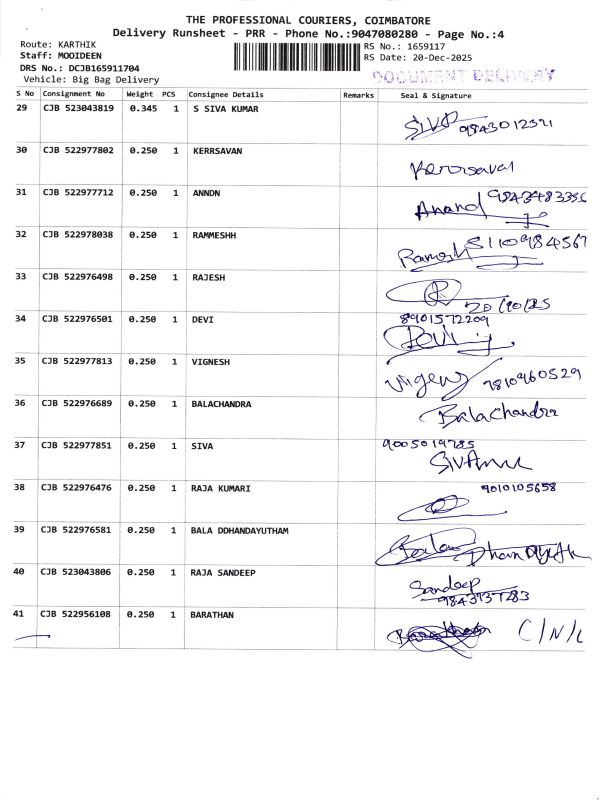 THE PROFESSIONAL COURIERS, COIMBATORE
Delivery Runsheet - PRR - Phone No.:9047080280 - Page No.:4
Route: KARTHIK
RS No.: 1659117
Staff: MOOIDEEN
RS Date: 20-Dec-2025
DRS No.: DCJB165911704
DOCUMENT DELIVERY
Vehicle: Big Bag Delivery
S No Consignment No Weight PCS Consignee Details Remarks Seal & Signature
29 CJB 523043819 0.345 1 S SIVA KUMAR SIVA
30 CJB 522977802 0.250 1 KERRSAVAN Kerrsavan
31 CJB 522977712 0.250 1 ANNDN Anand
32 CJB 522978038 0.250 1 RAMMESHH Ramesh 8110984567
33 CJB 522976498 0.250 1 RAJESH
34 CJB 522976501 0.250 1 DEVI 8901572209 Devi
35 CJB 522977813 0.250 1 VIGNESH 9810960529
36 CJB 522976689 0.250 1 BALACHANDRA Balachandra
37 CJB 522977851 0.250 1 SIVA 9005019785
38 CJB 522976476 0.250 1 RAJA KUMARI 9010105658
39 CJB 522976581 0.250 1 BALA DDHANDAYUTHAM
40 CJB 523043806 0.250 1 RAJA SANDEEP Sandeep
9843737283
41 CJB 522956108 0.250 1 BARATHAN C/N/L